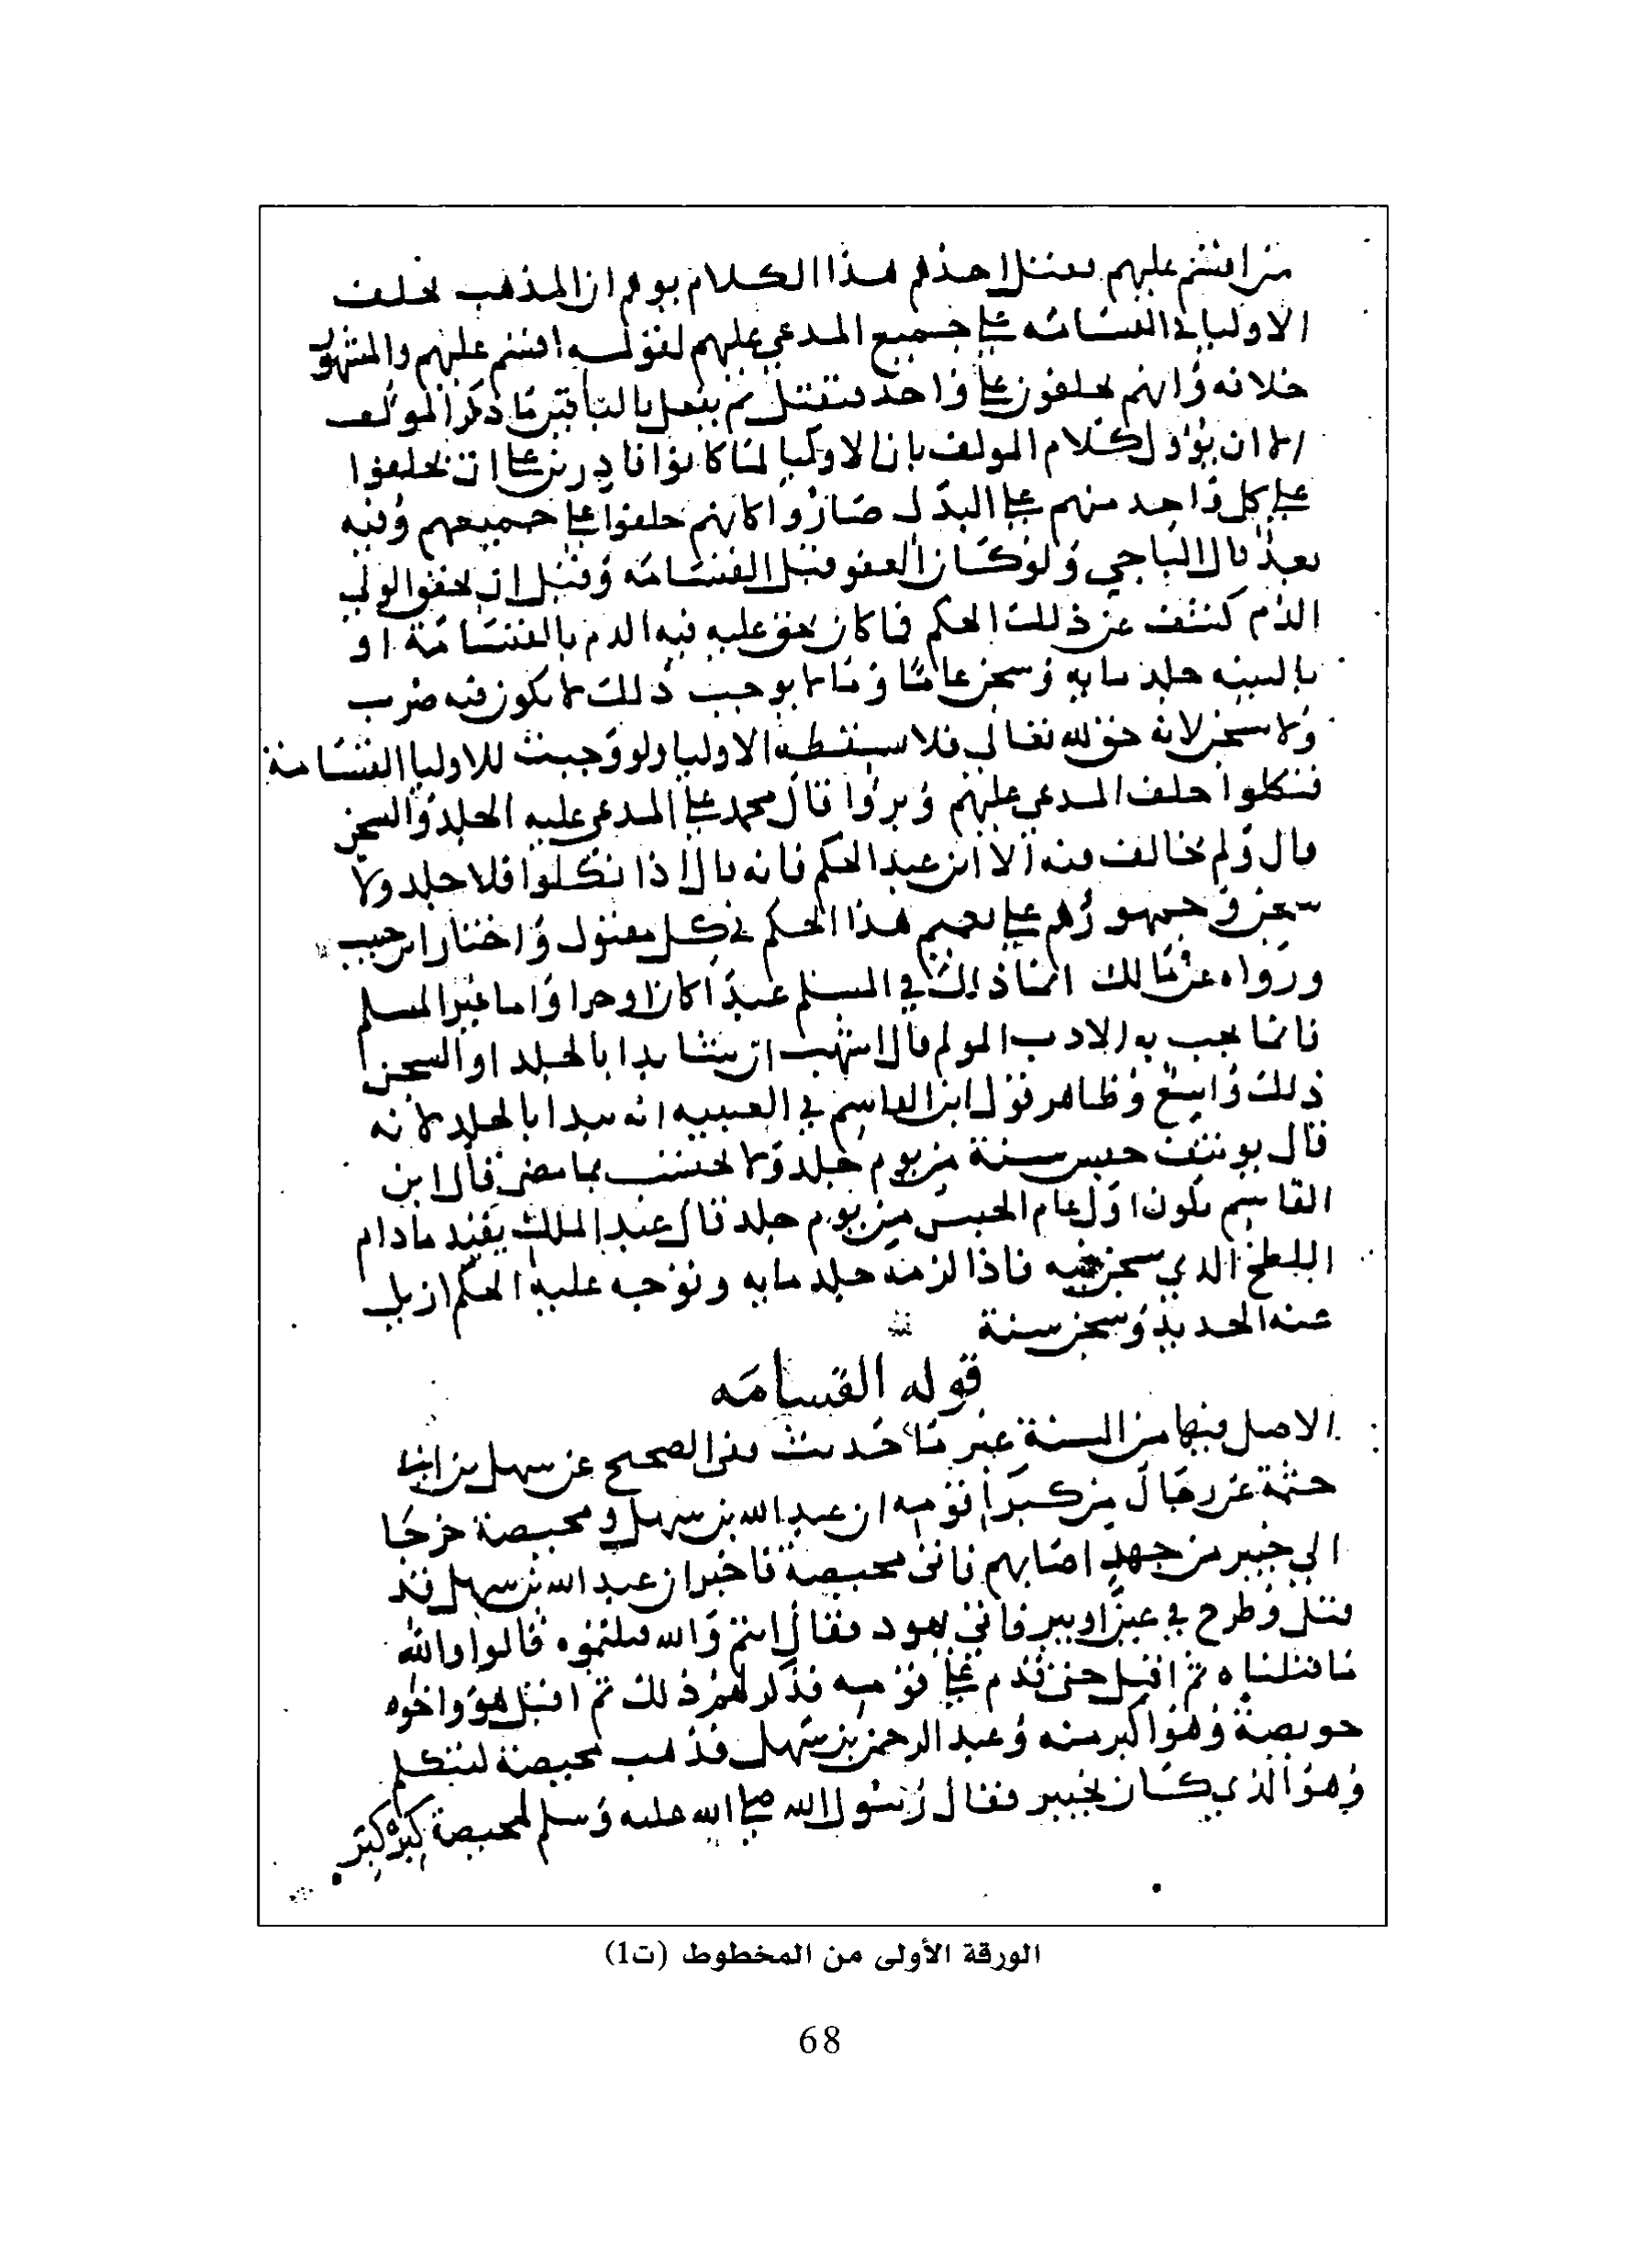 من اقسم عليهم فقتل احدهم هذا الكلام يوهم ان المذهب يحلف
الاوليا في القسامة على جميع المدعي عليهم لقوله اقسم عليهم والمشهور
خلافه وانهم يحلفون على واحد فيقتل ثم يفعل بالباقين ما ذكر المولف
الا ان يؤول كلام المولف بان الاوليا لما كانوا قادرين على ان يحلفوا
على كل واحد منهم على البدل صاروا كانهم حلفوا على جميعهم وفيه
بعد قال الباجي ولو كان العفو قبل القسامة وقبل ان يحقق الولي
الدم كشف عن ذلك الحكم فما كان يحق عليه فيه الدم بالقسامة او
بالبينه جلد مايه وسجن عاما وما لا يوجب ذلك لا يكون فيه ضرب
ولا سجن لانه حق لله تعالى فلا يسقطه الاوليا ولو وجبت للاوليا القسامة
فنكلوا حلف المدعي عليهم وبروا قال محمد على المدعى عليه الجلد والسجن
قال ولم يخالف فيه الا ابن عبد الحكم فانه قال اذا نكلوا فلا جلد ولا
سجن وجمهورهم على تعميم هذا الحكم في كل مقتول واختار ابن حبيب
ورواه عن مالك انما ذلك في المسلم عبدا كان او حرا واما غير المسلم
فانما يجب به الادب المولم قال اشهب ان شا بدا بالجلد او السجن
ذلك واسع وظاهر قول ابن القاسم في العتبيه انه يبدا بالجلد لانه
قال يوتنف حبس سنة من يوم جلد ولا يحتسب بما مضى قال ابن
القاسم يكون اول عام الحبس من يوم جلد قال عبد الملك يقيد ما دام
اللطخ الذي سجن فيه فاذا لزمه جلد مايه وتوجه عليه الحكم ازيل
عنه الحديد وسجن سنة
قوله القسامه
الاصل فيها من السنة غير ما حديث ففي الصحيح عن سهل بن ابي
حثمة عن رجال من كبرا قومه ان عبد الله بن سهل ومحيصة خرجا
الي خيبر من جهد اصابهم فاتى محيصة فاخبر ان عبد الله بن سهل قد
قتل وطرح في عين او بير فاتى يهود فقال انتم والله قتلتموه قالوا والله
ما قتلناه ثم اقبل حتى قدم على قومه فذكر لهم ذلك ثم اقبل هو واخوه
حويصة وهو اكبر منه وعبد الرحمن بن سهل فذهب محيصة ليتكلم
وهو الذي كان بخيبر فقال رسول الله صلى الله عليه وسلم لمحيصة كبر كبر
الورقة الأولى من المخطوط (ت1)
68